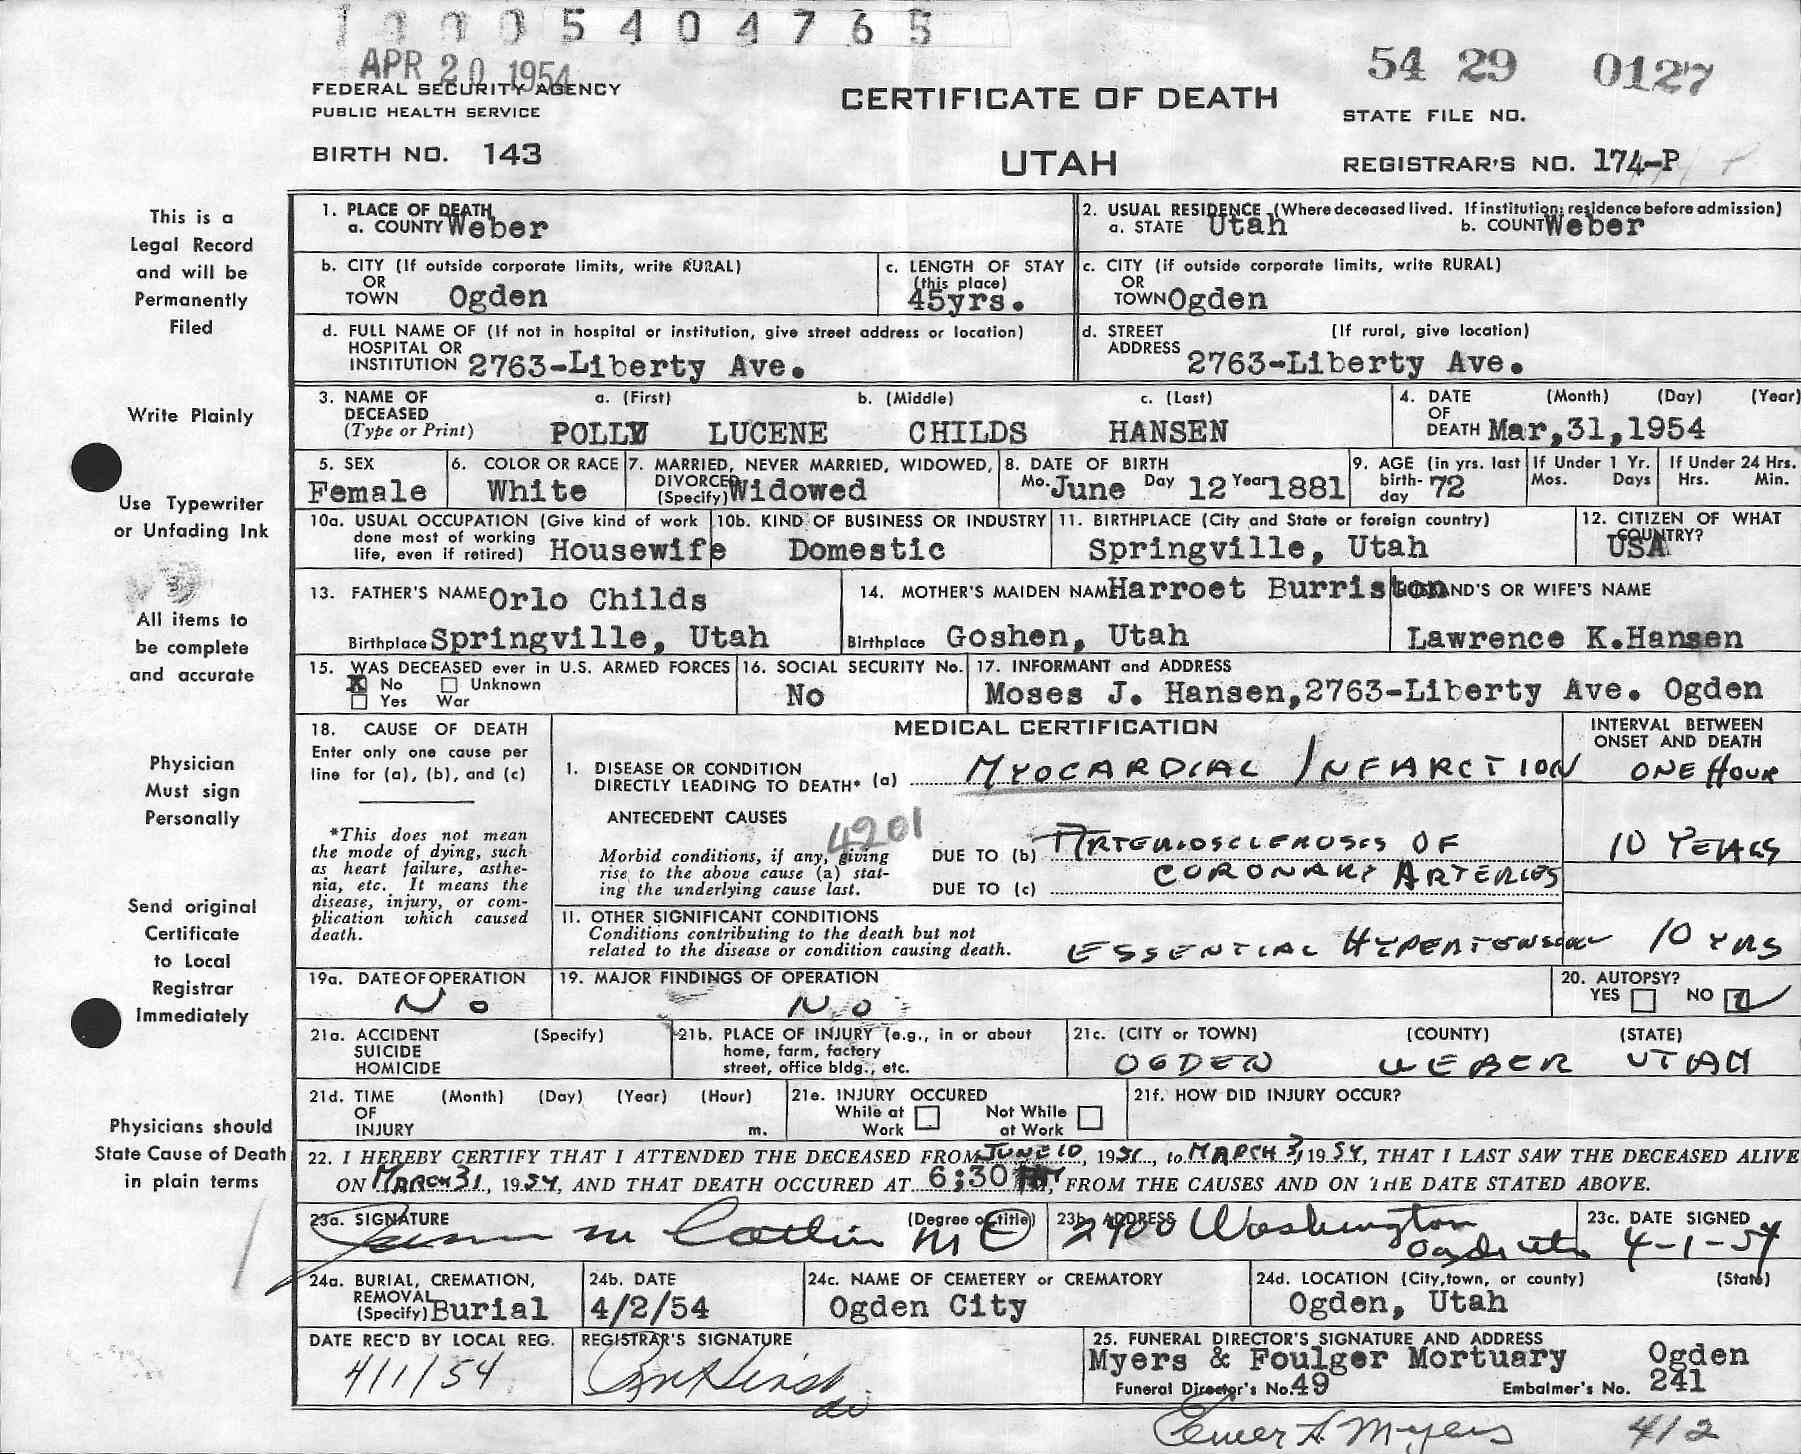 10005404765
APR 20 1954
54 29 0127
FEDERAL SECURITY AGENCY
PUBLIC HEALTH SERVICE
CERTIFICATE OF DEATH
STATE FILE NO.
BIRTH NO. 143
UTAH
REGISTRAR'S NO. 174-P
This is a
Legal Record
and will be
Permanently
Filed
Write Plainly
Use Typewriter
or Unfading Ink
All items to
be complete
and accurate
Physician
Must sign
Personally
Send original
Certificate
to Local
Registrar
Immediately
Physicians should
State Cause of Death
in plain terms
1. PLACE OF DEATH
a. COUNTY Weber
2. USUAL RESIDENCE (Where deceased lived. If institution: residence before admission)
a. STATE Utah b. COUNT Weber
b. CITY (If outside corporate limits, write RURAL)
OR
TOWN Ogden
c. LENGTH OF STAY
(this place)
45yrs.
c. CITY (if outside corporate limits, write RURAL)
OR
TOWN Ogden
d. FULL NAME OF (If not in hospital or institution, give street address or location)
HOSPITAL OR
INSTITUTION 2763-Liberty Ave.
d. STREET (If rural, give location)
ADDRESS 2763-Liberty Ave.
3. NAME OF a. (First) b. (Middle) c. (Last)
DECEASED
(Type or Print) POLLY LUCENE CHILDS HANSEN
4. DATE (Month) (Day) (Year)
OF
DEATH Mar,31,1954
5. SEX
Female
6. COLOR OR RACE
White
7. MARRIED, NEVER MARRIED, WIDOWED,
DIVORCED
(Specify) Widowed
8. DATE OF BIRTH
Mo. June Day 12 Year 1881
9. AGE (in yrs. last
birth-
day 72
If Under 1 Yr.
Mos. Days
If Under 24 Hrs.
Hrs. Min.
10a. USUAL OCCUPATION (Give kind of work
done most of working
life, even if retired) Housewife
10b. KIND OF BUSINESS OR INDUSTRY
Domestic
11. BIRTHPLACE (City and State or foreign country)
Springville, Utah
12. CITIZEN OF WHAT
COUNTRY?
USA
13. FATHER'S NAME Orlo Childs
Birthplace Springville, Utah
14. MOTHER'S MAIDEN NAM Harroet Burriston
Birthplace Goshen, Utah
AND'S OR WIFE'S NAME
Lawrence K.Hansen
15. WAS DECEASED ever in U.S. ARMED FORCES
X No Unknown
Yes War
16. SOCIAL SECURITY No.
No
17. INFORMANT and ADDRESS
Moses J. Hansen,2763-Liberty Ave. Ogden
18. CAUSE OF DEATH
Enter only one cause per
line for (a), (b), and (c)
*This does not mean
the mode of dying, such
as heart failure, asthe-
nia, etc. It means the
disease, injury, or com-
plication which caused
death.
MEDICAL CERTIFICATION
INTERVAL BETWEEN
ONSET AND DEATH
I. DISEASE OR CONDITION
DIRECTLY LEADING TO DEATH* (a) MYOCARDIAL INFARCTION ONE HOUR
ANTECEDENT CAUSES
4201
Morbid conditions, if any, giving
rise to the above cause (a) stat-
ing the underlying cause last.
DUE TO (b) ARTERIOSCLEROSIS OF 10 YEARS
CORONARY ARTERIES
DUE TO (c)
II. OTHER SIGNIFICANT CONDITIONS
Conditions contributing to the death but not
related to the disease or condition causing death.
ESSENTIAL HYPERTENSION 10 YRS
19a. DATE OF OPERATION
NO
19. MAJOR FINDINGS OF OPERATION
NO
20. AUTOPSY?
YES NO
21a. ACCIDENT (Specify)
SUICIDE
HOMICIDE
21b. PLACE OF INJURY (e.g., in or about
home, farm, factory
street, office bldg., etc.
21c. (CITY or TOWN) (COUNTY) (STATE)
OGDEN WEBER UTAH
21d. TIME (Month) (Day) (Year) (Hour)
OF
INJURY m.
21e. INJURY OCCURED
While at Not While
Work at Work
21f. HOW DID INJURY OCCUR?
22. I HEREBY CERTIFY THAT I ATTENDED THE DECEASED FROM JUNE 10, 1951, to MARCH 31 1954, THAT I LAST SAW THE DECEASED ALIVE
ON MARCH 31, 1954, AND THAT DEATH OCCURED AT 6:30 FROM THE CAUSES AND ON THE DATE STATED ABOVE.
23a. SIGNATURE (Degree or title)
M Catlin MD
23b. ADDRESS
2400 Washington
Ogden Utah
23c. DATE SIGNED
4-1-54
24a. BURIAL, CREMATION,
REMOVAL
(Specify) Burial
24b. DATE
4/2/54
24c. NAME OF CEMETERY or CREMATORY
Ogden City
24d. LOCATION (City,town, or county) (State)
Ogden, Utah
DATE REC'D BY LOCAL REG.
4/1/54
REGISTRAR'S SIGNATURE
25. FUNERAL DIRECTOR'S SIGNATURE AND ADDRESS
Myers & Foulger Mortuary Ogden
Funeral Director's No. 49 Embalmer's No. 241
Elmer A Myers 412